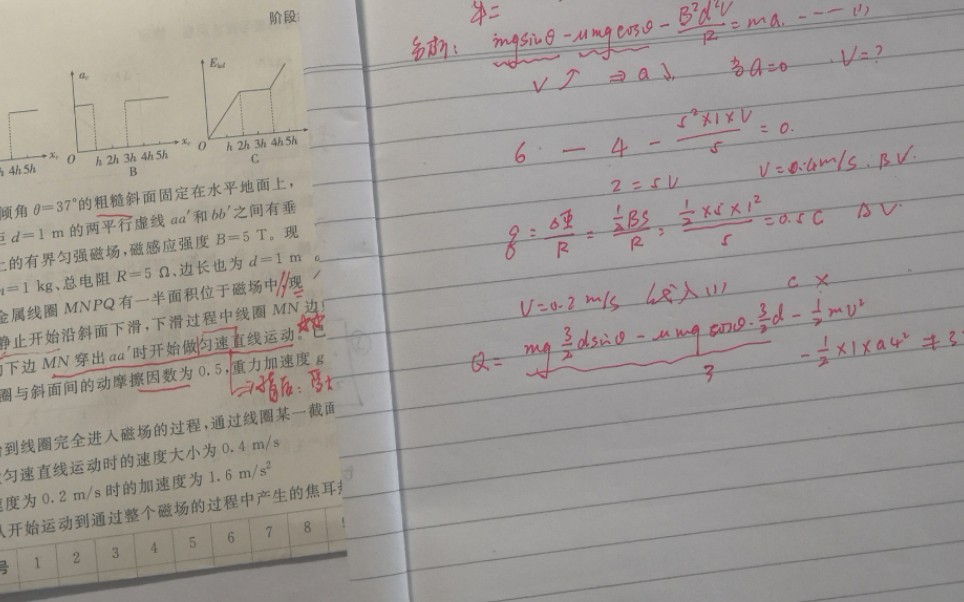 阶段
a
E
x
O
h 2h 3h 4h 5h
B
C
4h 5h
倾角 θ=37°的粗糙斜面固定在水平地面上,
d=1 m 的两平行虚线 aa′和 bb′之间有垂
上的有界匀强磁场,磁感应强度 B=5 T。现
=1 kg、总电阻 R=5 Ω、边长也为 d=1 m
金属线圈 MNPQ 有一半面积位于磁场中,现
静止开始沿斜面下滑,下滑过程中线圈 MN 边
下边 MN 穿出 aa′时开始做匀速直线运动。已
圈与斜面间的动摩擦因数为 0.5,重力加速度 g
到线圈完全进入磁场的过程,通过线圈某一截面
匀速直线运动时的速度大小为 0.4 m/s
度为 0.2 m/s 时的加速度为 1.6 m/s²
开始运动到通过整个磁场的过程中产生的焦耳热
号 1 2 3 4 5 6 7 8
mgsinθ - μmgcosθ - B²d²V/R = ma. ---- (1)
V↑ ⇒ a↓ 当a=0 V=?
6 - 4 - 5²×1×V/5 = 0.
2=5V V=0.4m/s. B√.
q = ΔΦ/R = ½BS/R = ½×5×1²/5 = 0.5C A√.
V=0.2 m/s 代入(1) C ×
Q = mg 3/2 d sinθ - μmg cosθ·3/2 d - ½mv²
3 - ½×1×0.4² ≠ 3